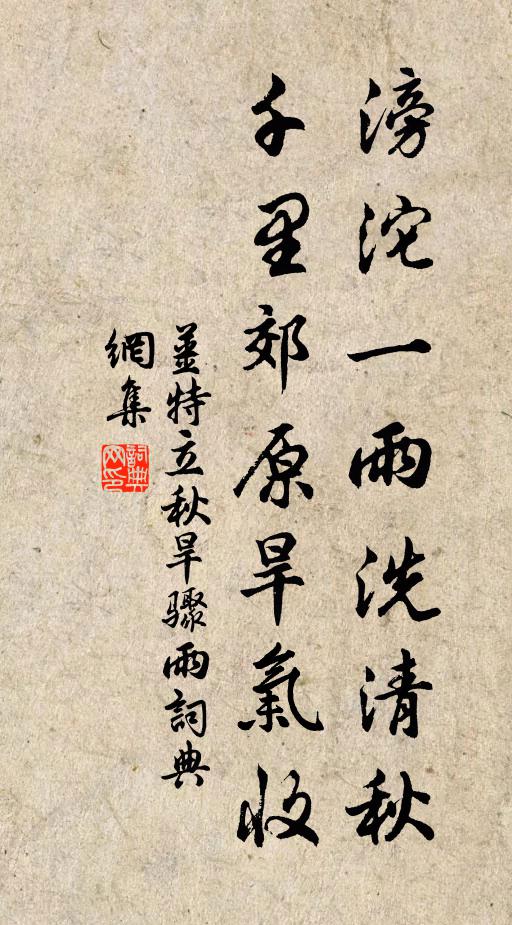 滂沱一雨洗清秋
千里郊原旱氣收
姜特立秋旱驟雨詞典
網集
詞典網印